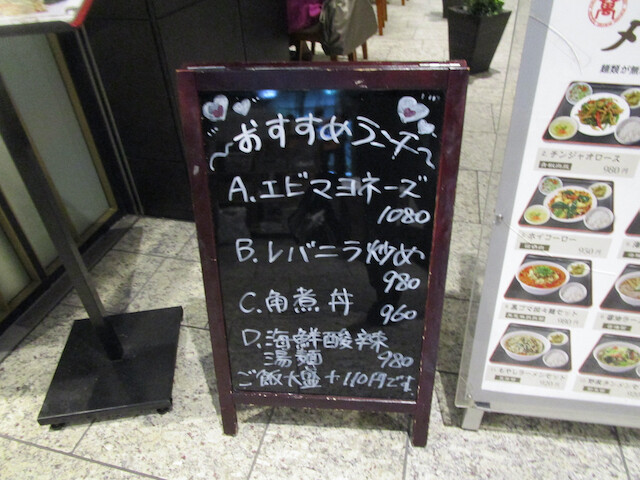 おすすめランチ
A.エビマヨネーズ
1080
B.レバニラ炒め
980
C.角煮丼
960
D.海鮮酸辣
湯麺 980
ご飯大盛+110円です
メ
麺類が無
チンジャオロース
980円
ホイコーロー
930円
黒ゴマ担々麺セット